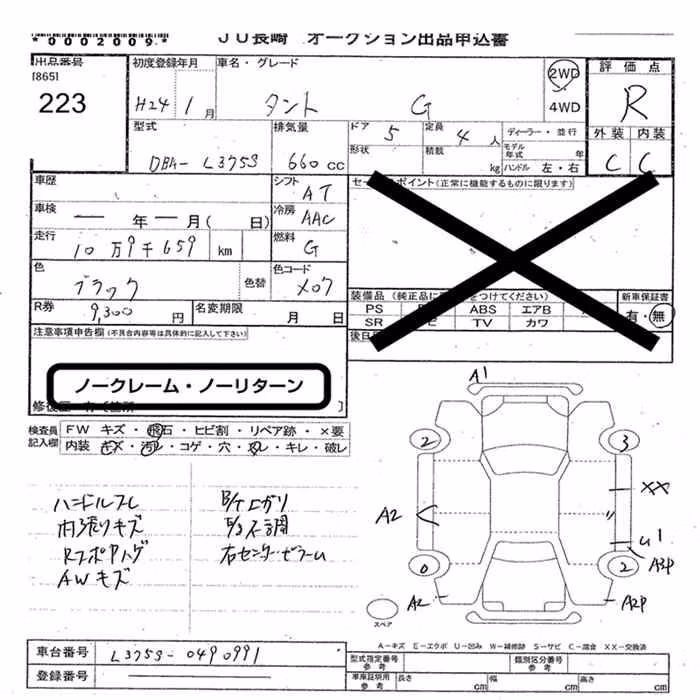 *0002009.*
JU長崎 オークション出品申込書
出品番号
[865]
223
初度登録年月
H24 1月
車名・グレード
タント G
2WD
4WD
評価点
R
外装 内装
C C
型式
DBA- L375S
排気量
660 CC
ドア 5
定員 4 人
形状
積載 kg
ディーラー・並行
モデル年式 年
ハンドル 左・右
車歴
シフト AT
車検 ー 年 ー 月( 日)
冷房 AAC
走行 10万9千659 km
燃料 G
色 ブラック
色替
色コード X07
R券 9,300円
名変期限 月 日
注意事項申告欄(不具合内容等は具体的に記入して下さい)
ノークレーム・ノーリターン
ポイント(正常に機能するものに限ります)
装備品
つけてください)
新車保証書
有・無
PS
ABS
エアB
SR
TV
カワ
検査員記入欄
FW キズ・飛石・ヒビ割・リペア跡・×要
内装 キズ・汚レ・コゲ・穴・スレ・キレ・破レ
ハンドルスレ
内張りキズ
AWキズ
A1
2
3
XX
A2
U1
0
2
A3P
A2
A2P
スペア
A-キズ E-エクボ U-凹み W-補修跡 S-サビ C-腐食 XX-交換済
車台番号 L375S-0490991
登録番号
型式指定番号 参考
類別区分番号 参考
車庫証明用 参考
長さ cm
幅 cm
高さ cm